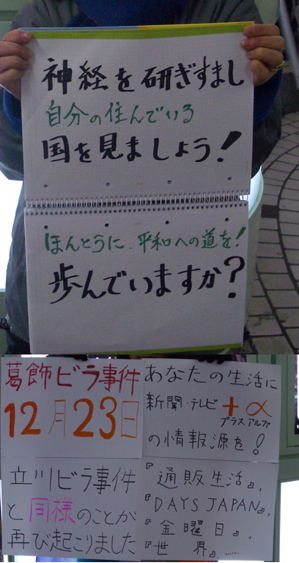 神経を研ぎすまし
自分の住んでいる
国を見ましょう！
ほんとうに、平和への道を！
歩んでいますか？
葛飾ビラ事件
12月23日
立川ビラ事件
と同様のことが
再び起こりました
あなたの生活に
新聞・テレビ +α
プラスアルファ
の情報源を！
『通販生活』、
『DAYS JAPAN』、
『金曜日』、
『世界』、……